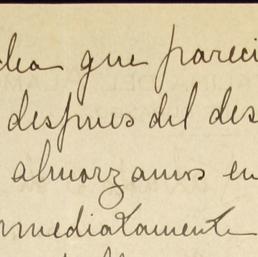 que pareci
despues del des
almorzamos en
nmediatamente